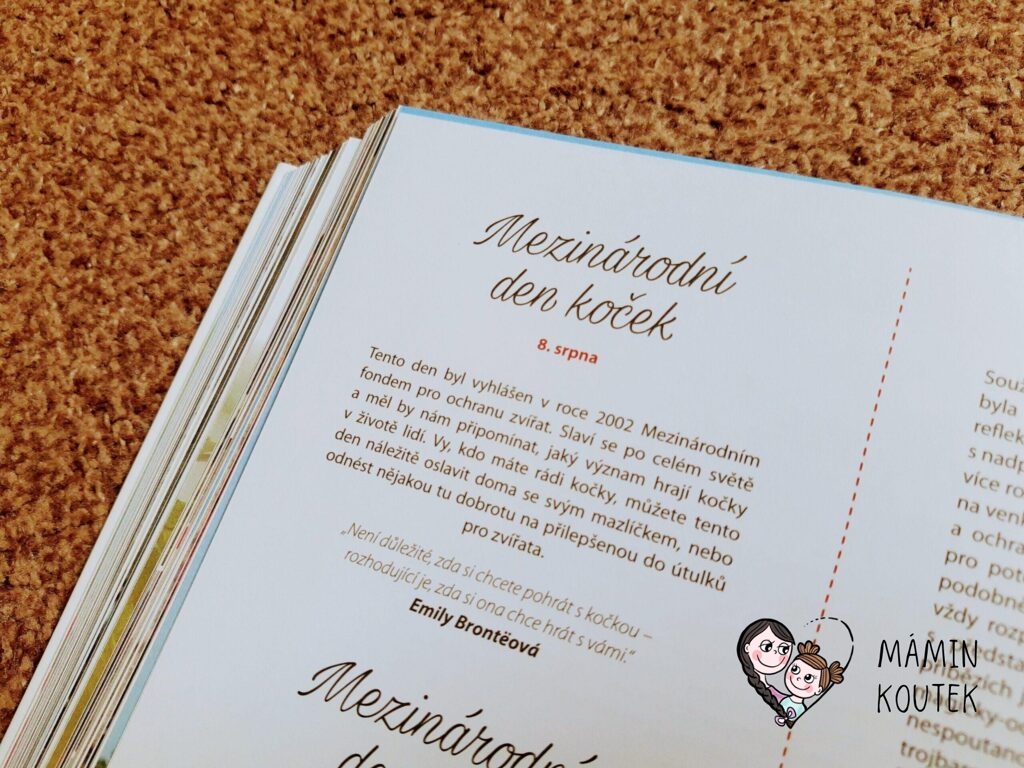 Mezinárodní
den koček
8. srpna
Tento den byl vyhlášen v roce 2002 Mezinárodním
fondem pro ochranu zvířat. Slaví se po celém světě
a měl by nám připomínat, jaký význam hrají kočky
v životě lidí. Vy, kdo máte rádi kočky, můžete tento
den náležitě oslavit doma se svým mazlíčkem, nebo
odnést nějakou tu dobrotu na přilepšenou do útulků
pro zvířata.
„Není důležité, zda si chcete pohrát s kočkou –
rozhodující je, zda si ona chce hrát s vámi.“
Emily Brontëová
Mezinárodní
byla
s nadp
více ro
na venk
a ochra
pro pot
podobně
vždy rozp
příbězích
nespoutano
MÁMIN
KOUTEK